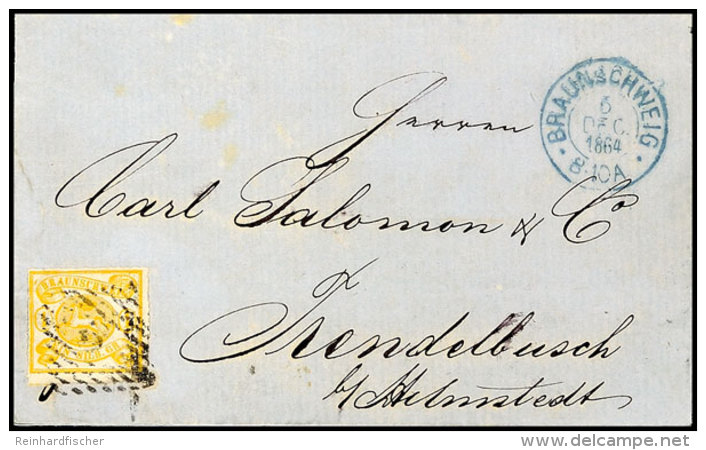 BRAUNSCHWEIG
5
DEC.
1864
8-10A
Herren
Carl Salomon & Co
Trendelbusch
b/Helmstedt
BRAUNSCHW
Reinhardfischer
www.delcampe.net